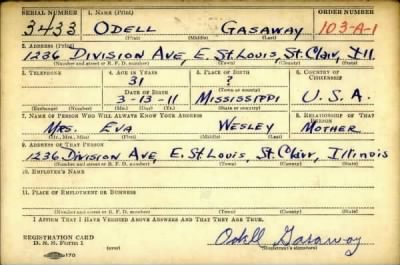 SERIAL NUMBER 1. NAME (Print) ORDER NUMBER
3433 ODELL GASAWAY 103-A-1
(First) (Middle) (Last)
2. ADDRESS (Print)
1236 DIVISION AVE, E. ST. LOUIS, ST. CLAIR, ILL.
(Number and street or R. F. D. number) (Town) (County) (State)
3. TELEPHONE 4. AGE IN YEARS 5. PLACE OF BIRTH 6. COUNTRY OF CITIZENSHIP
31 ?
DATE OF BIRTH (Town or county)
3-13-11 MISSISSIPPI U.S.A.
(Exchange) (Number) (Mo.) (Day) (Yr.) (State or country)
7. NAME OF PERSON WHO WILL ALWAYS KNOW YOUR ADDRESS 8. RELATIONSHIP OF THAT PERSON
MRS. EVA WESLEY MOTHER
(Mr., Mrs., Miss) (First) (Middle) (Last)
9. ADDRESS OF THAT PERSON
1236 DIVISION AVE, E. ST. LOUIS, ST. CLAIR, ILLINOIS
(Number and street or R. F. D. number) (Town) (County) (State)
10. EMPLOYER'S NAME
11. PLACE OF EMPLOYMENT OR BUSINESS
(Number and street or R. F. D. number) (Town) (County) (State)
I AFFIRM THAT I HAVE VERIFIED ABOVE ANSWERS AND THAT THEY ARE TRUE.
REGISTRATION CARD
D. S. S. FORM 1 (over) Odell Gasaway